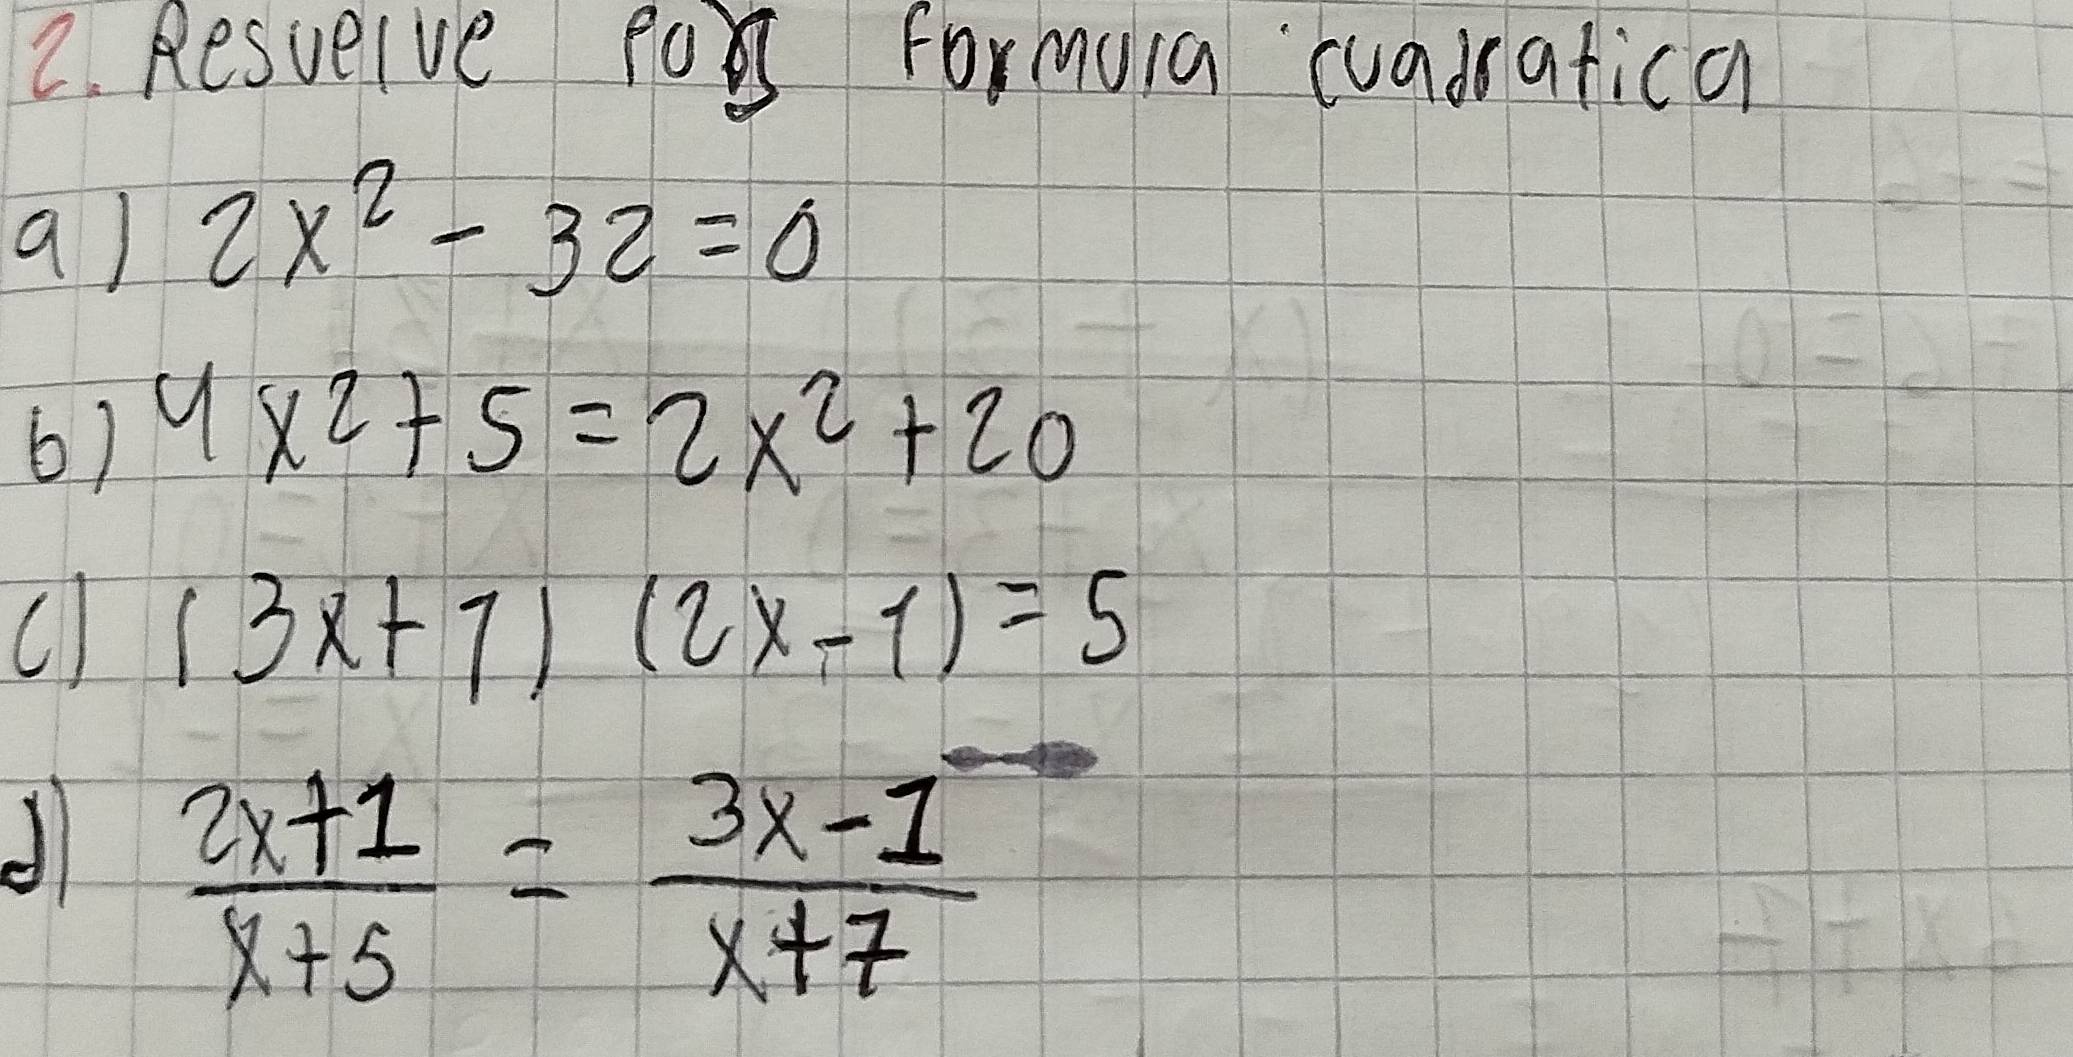 2. Resuelve por formula cuadratica
a) 2x² - 32 = 0
b) 4x² + 5 = 2x² + 20
c) (3x + 7) (2x - 1) = 5
d) \frac{2x+1}{x+5} = \frac{3x-1}{x+7}